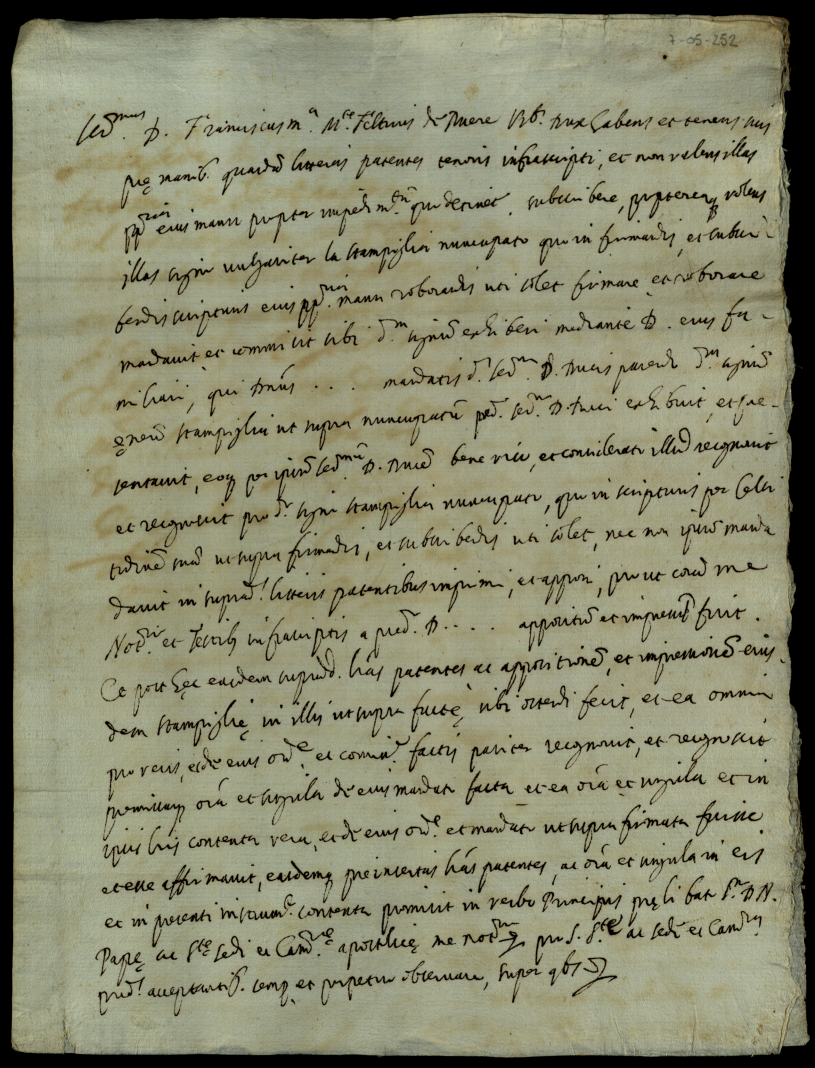 7-05-252
Ser.mus D. Franciscus m.a M.ce Feltrius de Ruere Urb. Dux habens et tenens suis
pre manib. quasdā litteras patentes tenoris infrascripti, et non valens illas
ppria eius manu propter impedim.tū quo detinet. subscribere, propterea volens
illas signi vulgariter la stampiglia nuncupato quo in firmandis, et subscri-
bendis scripturis eius ppria manu roborandis uti solet firmare et roborare
mandavit et commisit sibi d.m signū exhiberi mediante D. eius fa-
miliari, qui Dnūs . . . . mandatis d. Ser.mi D. Ducis parendo d.m signū
ęneū stampiglia ut supra nuncupatū pred. Ser.mo D. Duci exhibuit, et prę-
sentavit, eoq per ipsū Ser.mū D. Ducē bene viso, et considerato illud recognovit
et recognoscit pro d.o signo stampiglia nuncupato, quo in scripturis per Celsi
tudinē suā ut supra firmādis, et subscribēdis uti solet, nec non ipsū manda
davit in suprad. litteris patentibus imprimi, et apponi, prout corā me
Not.rio et Testib. infrascriptis a pred. D. . . . appositū et impressū fuit.
Et post hęc easdem suprad. lrās patentes ac appositionē, et impressionē eius-
dem stampiglię in illis ut supra factę sibi ostendi fecit, et ea omnia
pro veris, et de eius ord.e et comm.e factis pariter recognovit, et recognoscit
premissaq oīa et singula de eius mandato facta et ea oīa et singula et in
ipsis lris contenta vera, et de eius ord.e et mandato ut supra firmata fuisse
et esse affirmavit, easdemq preinsertas lrās patentes, ac oīa et singula in eis
et in presenti instrum.to contenta promisit in verbo Principis prę li bat S.mo D. N.
Papę ac S.tę Sedi et Cam.rę apostlicę me not.o pro S. S.te ac Sede et Cam.ra
pred. acceptantib. semp. et perpetuo observare, super qbs